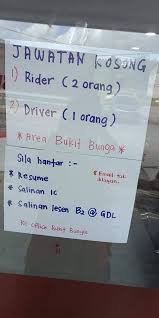 JAWATAN KOSONG
1) Rider (2 orang)
2) Driver (1 orang)
* Area Bukit Bunga *
Sila hantar :-
* Resume
* Salinan IC
* Salinan lesen B2 @ GDL
Ke office Bukit Bunga